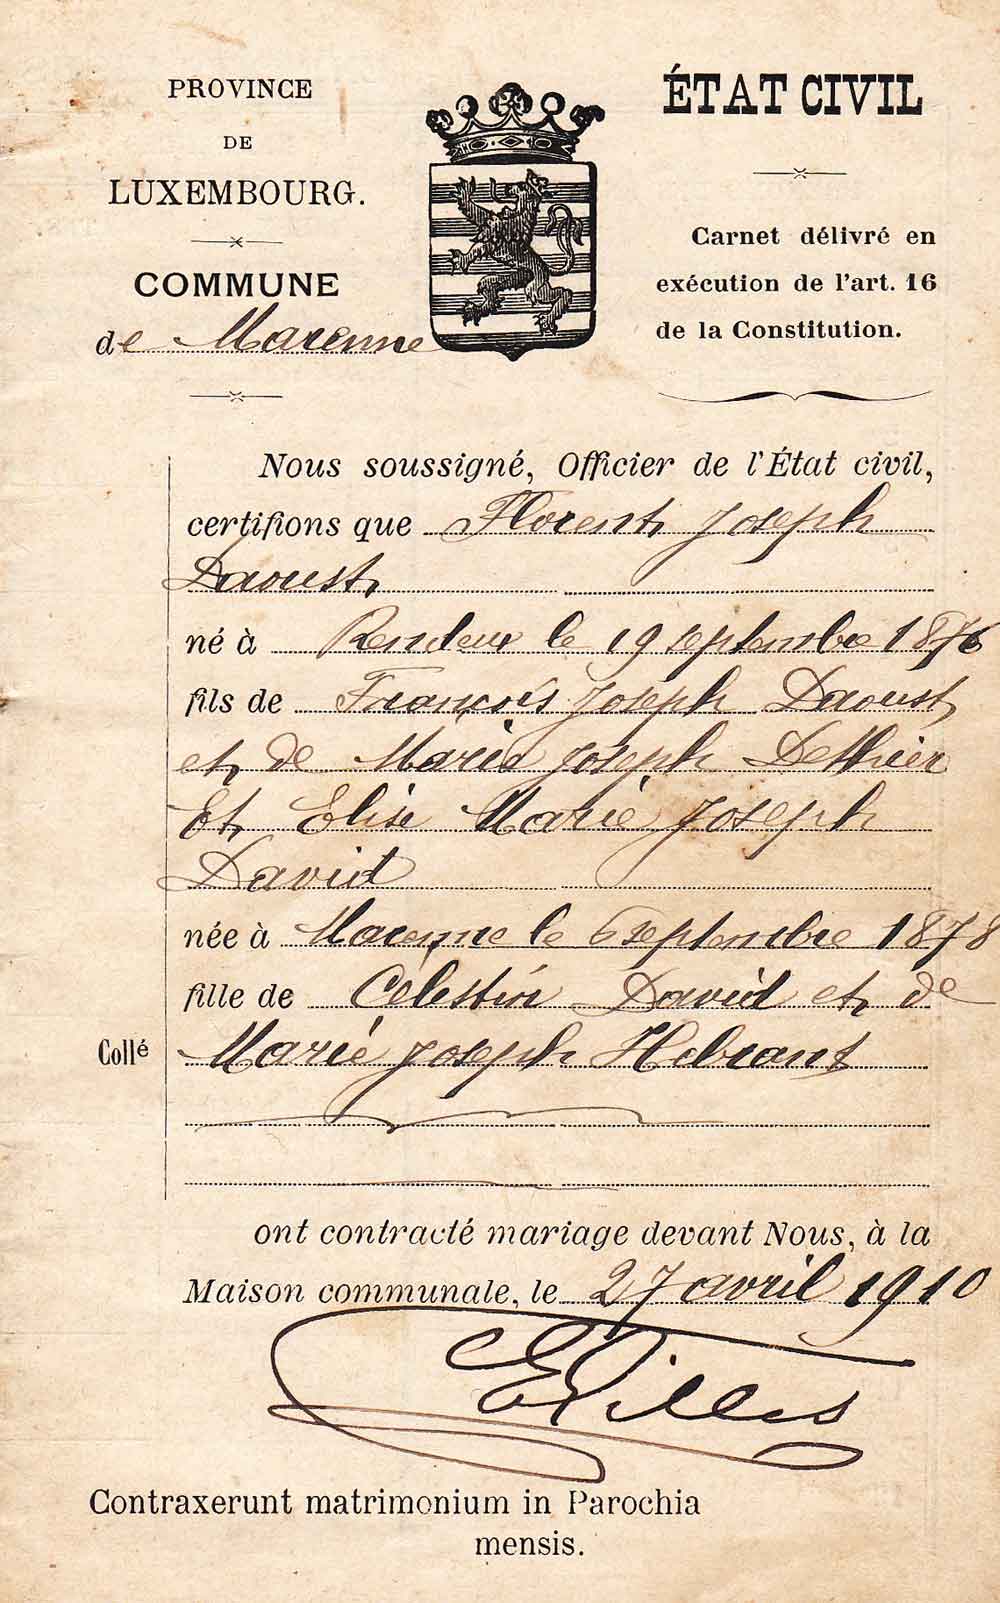 PROVINCE
DE
LUXEMBOURG.
COMMUNE
de Marenne
ÉTAT CIVIL
Carnet délivré en
exécution de l'art. 16
de la Constitution.
Nous soussigné, Officier de l'État civil,
certifions que Florent Joseph
Daoust
né à Rendeux le 19 septembre 1876
fils de François Joseph Daoust
et de Marie Joseph Dethier
Et Elise Marie Joseph
David
née à Marenne le 6 septembre 1878
fille de Célestin David et de
Collé
Marie Joseph Hebrant
ont contracté mariage devant Nous, à la
Maison communale, le 27 avril 1910
Contraxerunt matrimonium in Parochia
mensis.